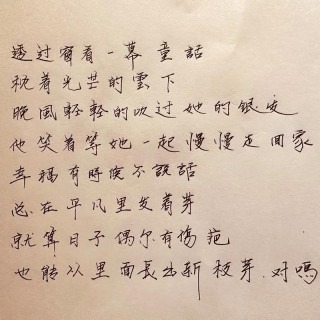 透过窗看一幕童話
枕着光芒的雲下
晚風輕輕的吹过她的银发
他笑着等她一起慢慢走回家
幸福有時候不說話
总在平凡里发着芽
就算日子偶尔有傷疤
也能从里面長出新枝芽.对嗎